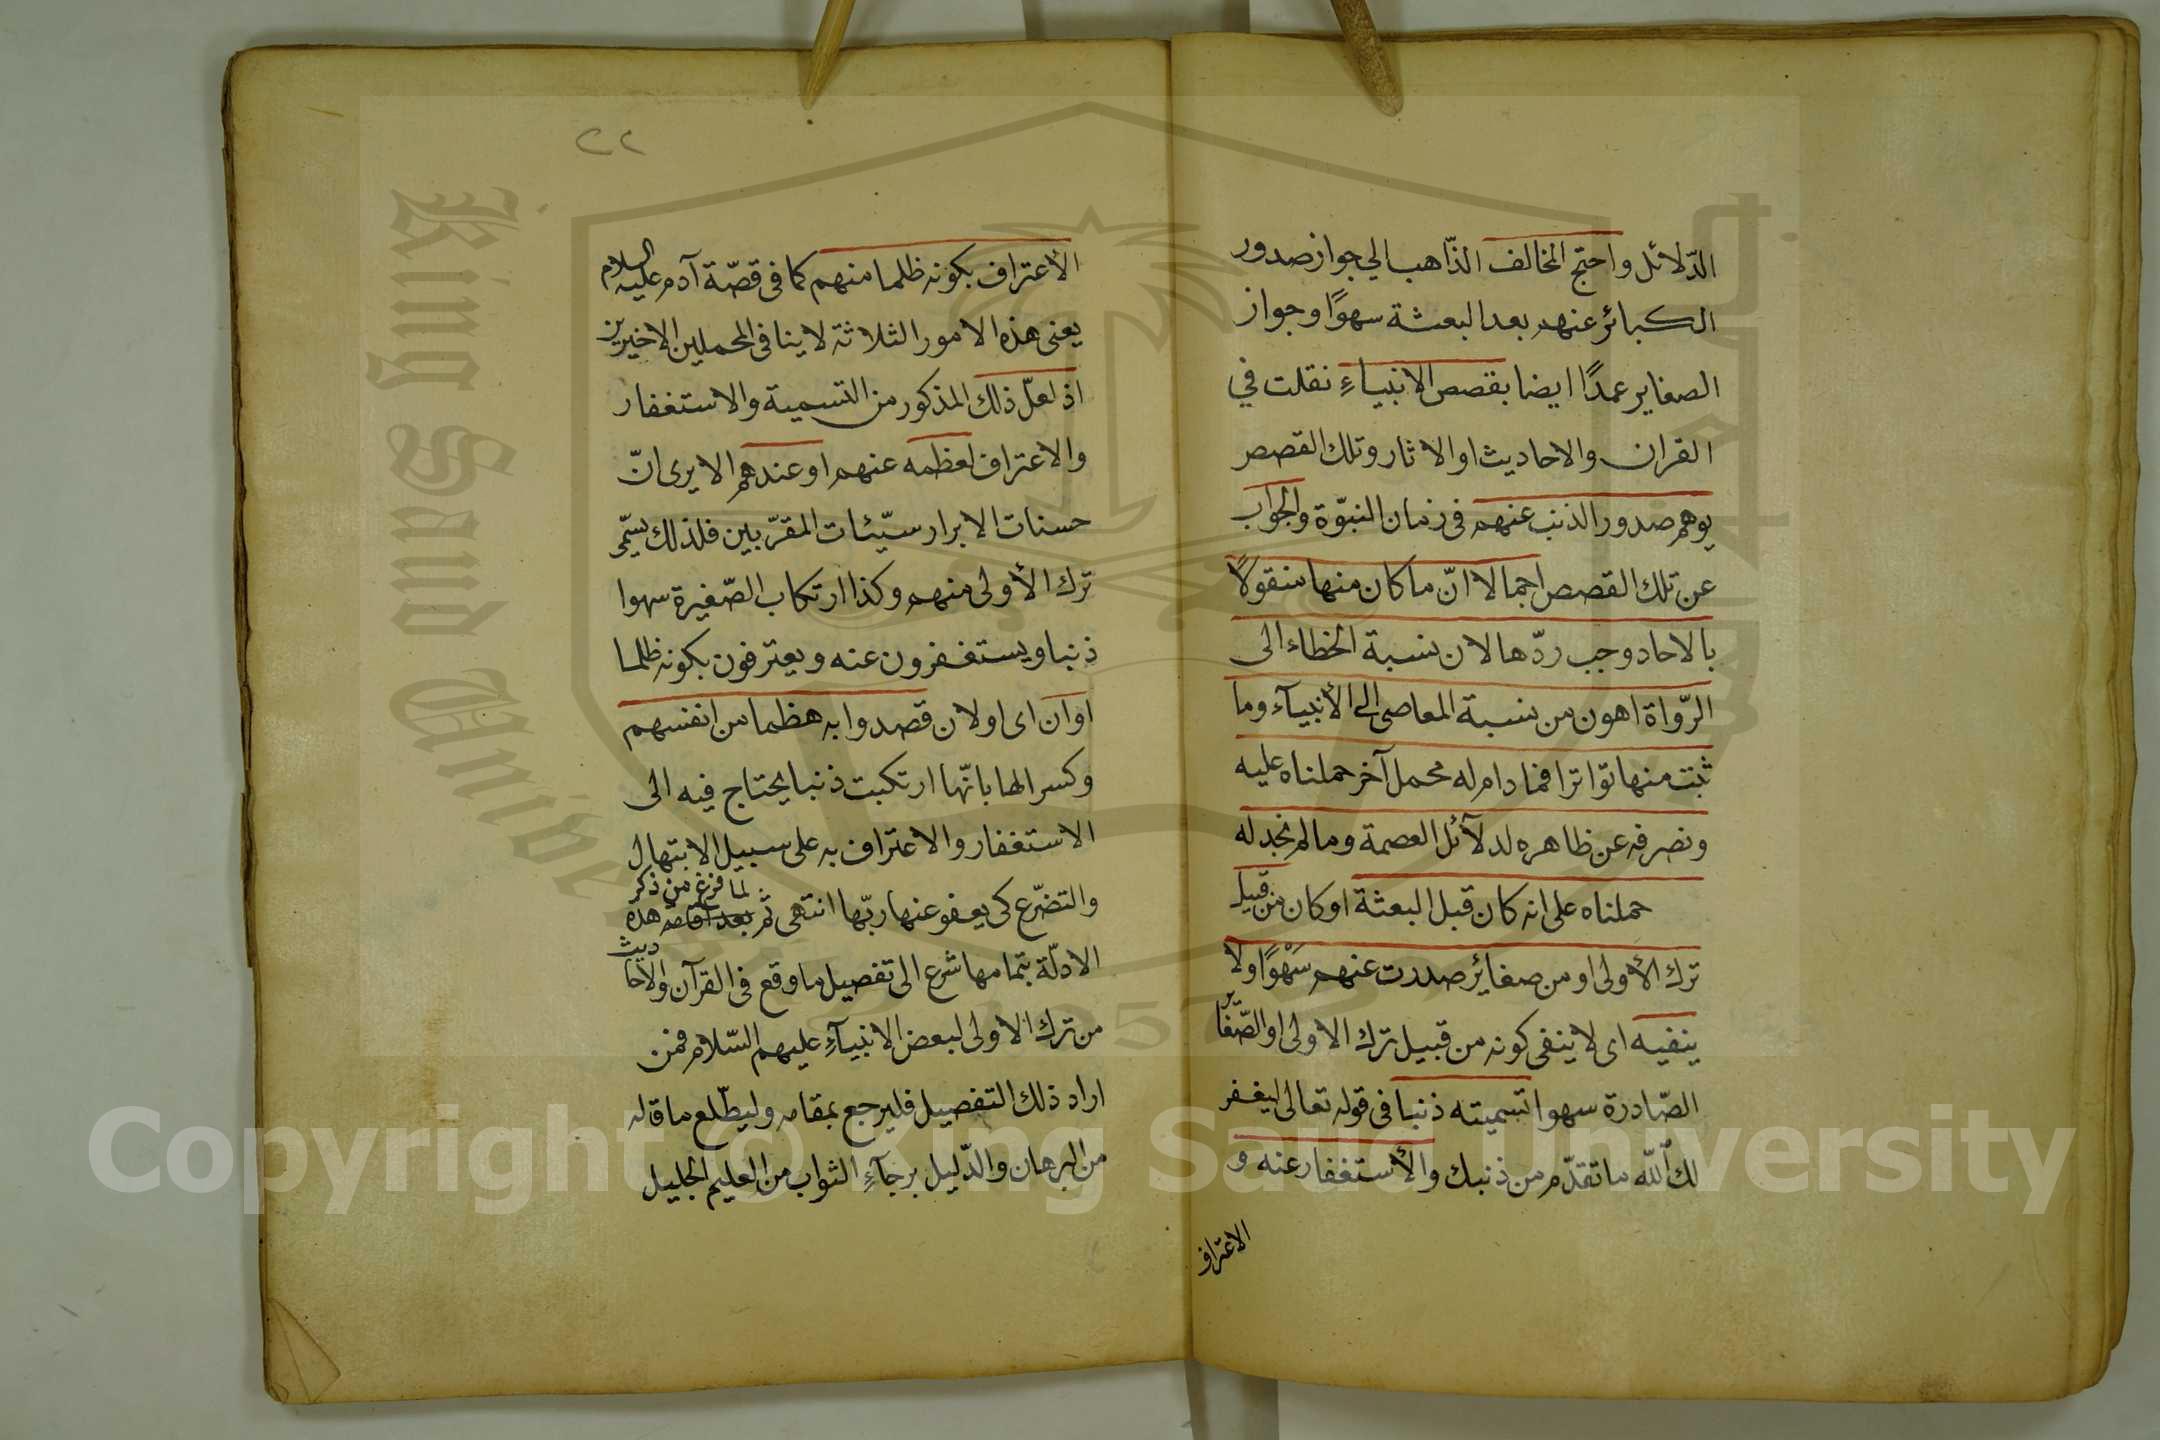 الدّلائل واحتج المخالف الذّاهب الي جواز صدور
الكبائر عنهم بعد البعثة سهوًا وجواز
الصغاير عمدًا ايضا بقصص الانبياءِ نقلت في
القران والاحاديث او الاثار وتلك القصص
يوهم صدور الذنب عنهم فى زمان النبوّة والجواب
عن تلك القصص اجمالا انّ ما كان منها منقولاً
بالاحاد وجب ردّها لان نسبة الخطاء الى
الرّواة اهون من نسبة المعاصى الى الأنبيآء وما
ثبت منها تواترا فما دام له محمل آخر حملناه عليه
ونصرفه عن ظاهره لدلآئل العصمة وما لم نجد له
حملناه على انه كان قبل البعثة او كان من قبيل
ترك الأولى او من صغائر صدرت عنهم سَهْوًا ولا
ينفيه اى لا ينفى كونه من قبيل ترك الاولى او الصّغاير
الصّادرة سهوا تسميته ذنبا فى قوله تعالى ليغفر
لك اللّٰه ما تقدّم من ذنبك والأستغفار عنه و
الاعتراف
٢٢
الأعتراف بكونه ظلما منهم كما فى قصّة آدم عليه السلام
يعنى هذه الامور الثلاثة لا ينافى المحملين الاخيرين
اذ لعلّ ذلك المذكور من التسمية والاستغفار
والاعتراف لعظمه عنهم او عندهم الا يرى انّ
حسنات الابرار سيّئات المقرّبين فلذلك يسمّى
ترك الأولى منهم وكذا ارتكاب الصّغيرة سهوا
ذنبا ويستغفرون عنه ويعترفون بكونه ظلما
او ان اى او لان قصدوا به هظما من انفسهم
وكسرا لها بانّها ارتكبت ذنبا يحتاج فيه الى
الاستغفار والاعتراف به على سبيل الابتهال
والتضرّع كى يعفو عنها ربّها انتهى ثم لما فرغ من ذكر هذه
الادلّة بتمامها شرع الى تفصيل ما وقع فى القرآن والاحاديث
من ترك الاولى لبعض الانبيآءِ عليهم السّلام فمن
اراد ذلك التفصيل فليرجع بمقامه وليطّلع ما قاله
من البرهان والدّليل برجآءِ الثواب من العليم الجليل
King Saud
1957
Copyright © King Saud University